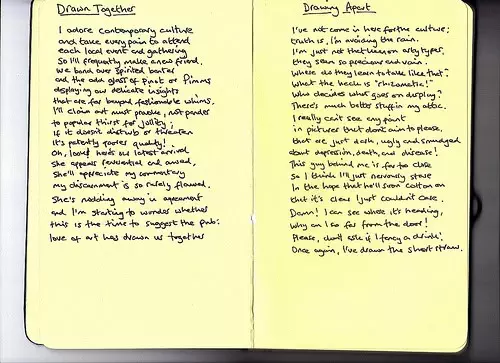 Drawn Together
I adore contemporary culture
and take every pain to attend
each local event and gathering
So I'll frequently make a new friend.
We bond over spirited banter
and the odd glass of Pinot or Pimms
displaying our delicate insights
that are far beyond fashionable whims.
I'll claim art must provoke, not pander
to popular thirst for jollity;
If it doesn't disturb or threaten
it's patently poorer quality!
Oh, look! here's our latest arrival
she appears reverential and awed,
She'll appreciate my commentary
my discernment is so rarely flawed.
She's nodding away in agreement
and I'm starting to wonder whether
this is the time to suggest the pub:
love of art has drawn us together
Drawing Apart
I've not come in here for the culture;
truth is, I'm avoiding the rain.
I'm just not that keen on arty types,
they seem so precious and vain.
Where do they learn to talk like that?
What the heck is "chromatic!"
Who decides what goes on display?
There's much better stuff in my attic.
I really can't see any point
in pictures that don't aim to please,
that are just dark, ugly and smudged
about depression, death, and disease!
This guy behind me is far too close
So I think I'll just nervously stare
In the hope that he'll soon cotton on
that it's clear I just couldn't care.
Damn! I can see where it's heading,
why am I so far from the door!
Please, don't ask if I fancy a drink!
Once again, I've drawn the short straw.